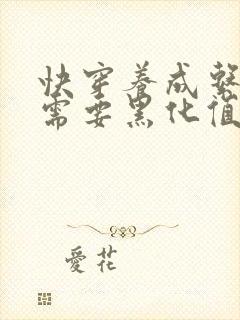 快穿养成系
需要黑化值
愛花